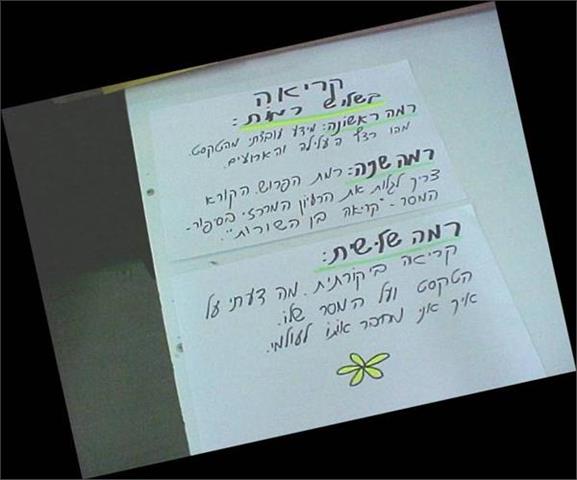 קריאה
בשליש רמות:
רמה ראשונה: מידע עובדתי מהטקסט.
מהו רצף העלילה והארועים.
רמה שניה: רמת הפרוש. הקורא
צריך לגלות את הרעיון המרכזי בסיפור-
המסר - "קריאה בן השורות".
רמה שלישית:
קריאה ביקורתית. מה דעתי על
הטקסט ועל המסר שלו.
איך אני מחבר אותו לעולמי.